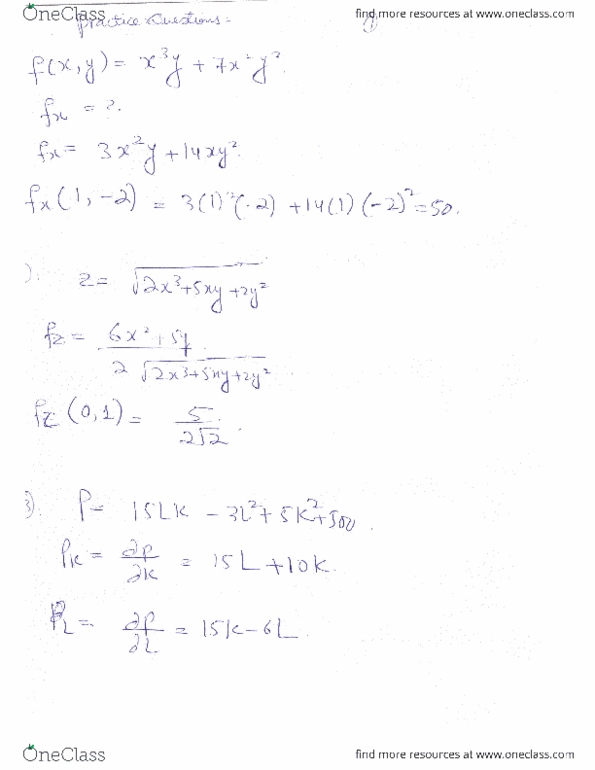 OneClass
find more resources at www.oneclass.com
practice Questions:-
f(x,y) = x³y + 7x²y².
fx = ?.
fx = 3x²y + 14xy².
fx(1, -2) = 3(1)²(-2) + 14(1)(-2)² = 50.
). z = √2x³+5xy+2y²
fz = 6x²+5y
2 √2x³+5xy+2y²
fz (0,1) = 5
2√2 .
3). P = 15LK - 3L²+5K²+500.
PK = ∂P = 15L + 10K.
∂K
PL = ∂P = 15K - 6L.
∂L
OneClass
find more resources at www.oneclass.com